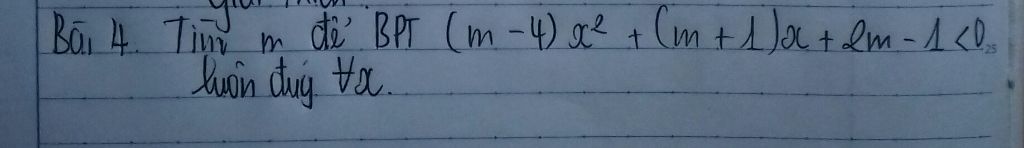 Bài 4. Tìm m để BPT (m - 4) x² + (m + 1)x + 2m - 1 < 0
luôn đúng ∀x.